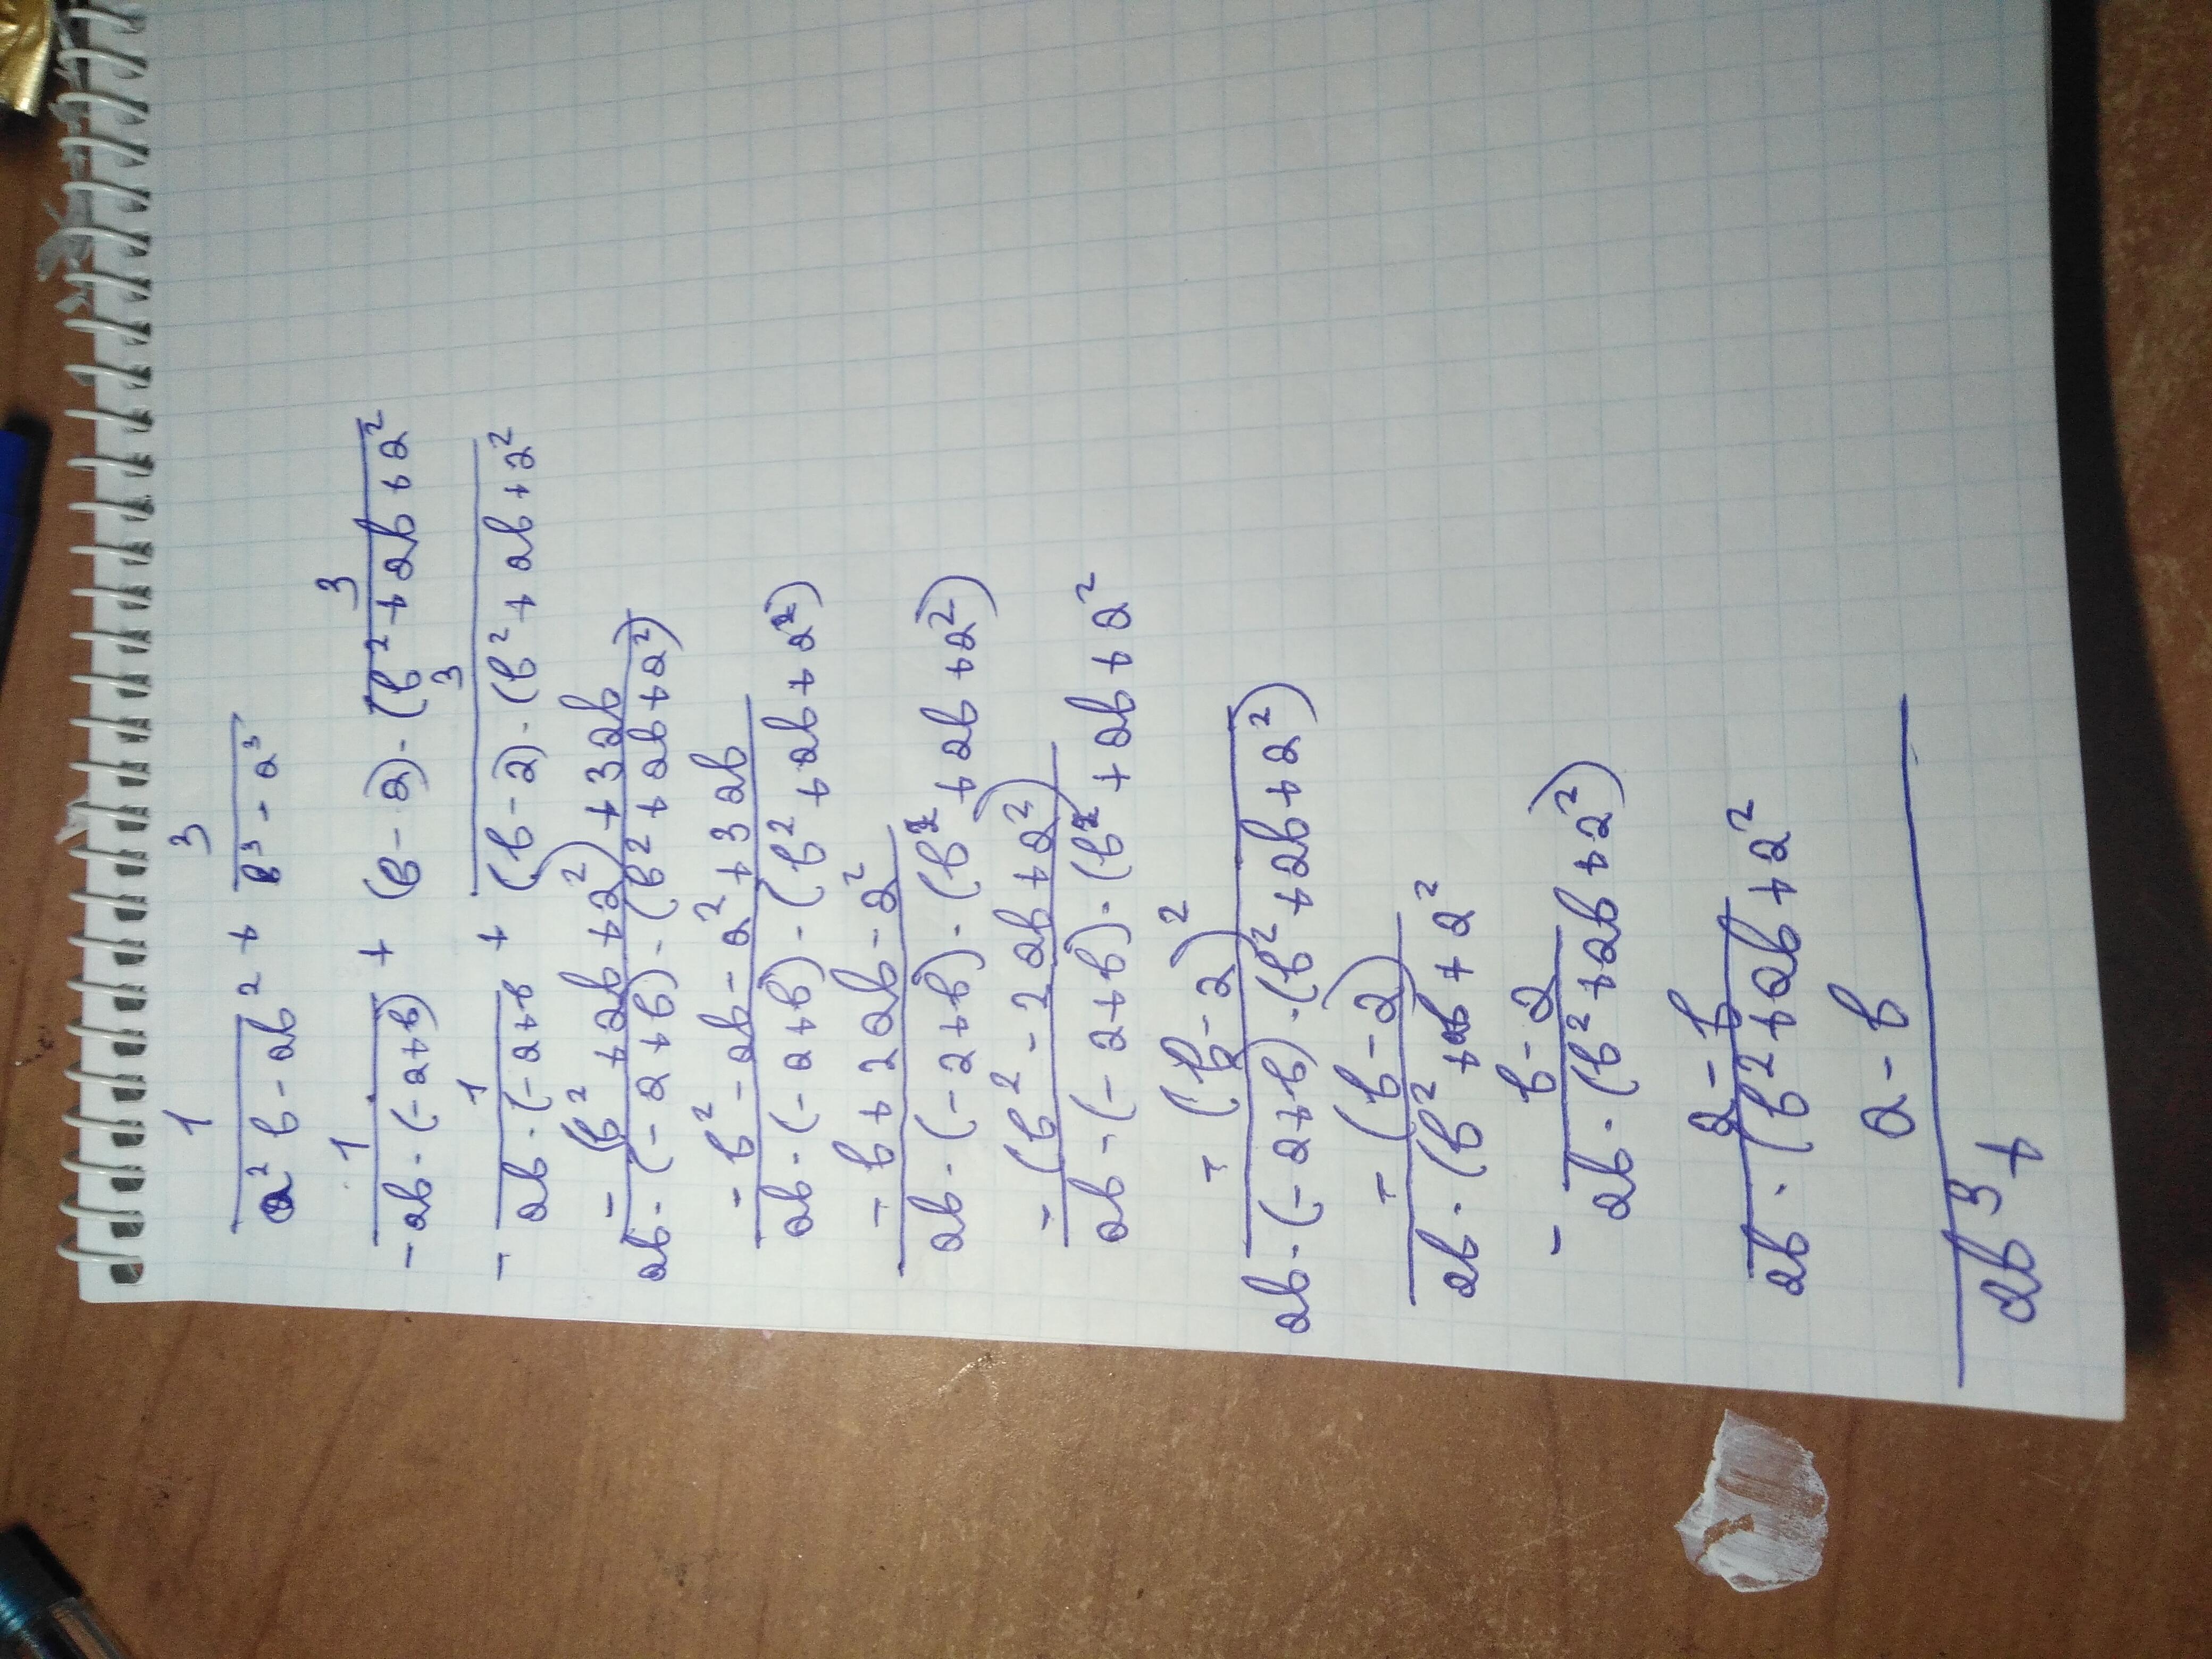 1 3
a² b - ab² + b³ - a³
1 3
- ab · (- a + b) + (b - a) · (b² + ab + a²
1 3
- ab · (- a + b + (b - a) · (b² + ab + a²
- (b² + ab + a²) + 3 ab
ab · (- a + b) · (b² + ab + a²)
- b² - ab - a² + 3 ab
ab · (- a + b) · (b² + ab + a²)
- b + 2 ab - a²
ab · (- a + b) · (b² + ab + a²)
- (b² - 2 ab + a²)
ab · (- a + b) · (b² + ab + a²
- (b - a)²
ab · (- a + b) · (b² + ab + a²)
- (b - a)
ab · (b² + ab + a²
b - a
- ab · (b² + ab + a²)
a - b
ab · (b² + ab + a²
a - b
ab³ +